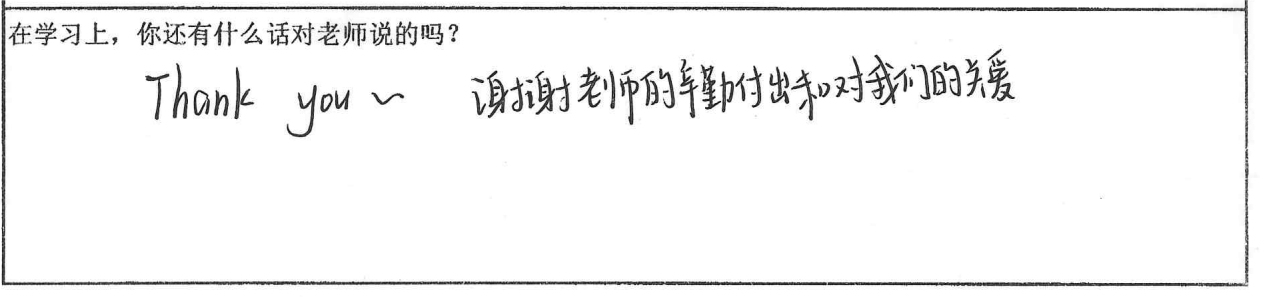 在学习上，你还有什么话对老师说的吗？
Thank you ~ 谢谢老师的辛勤付出和对我们的关爱